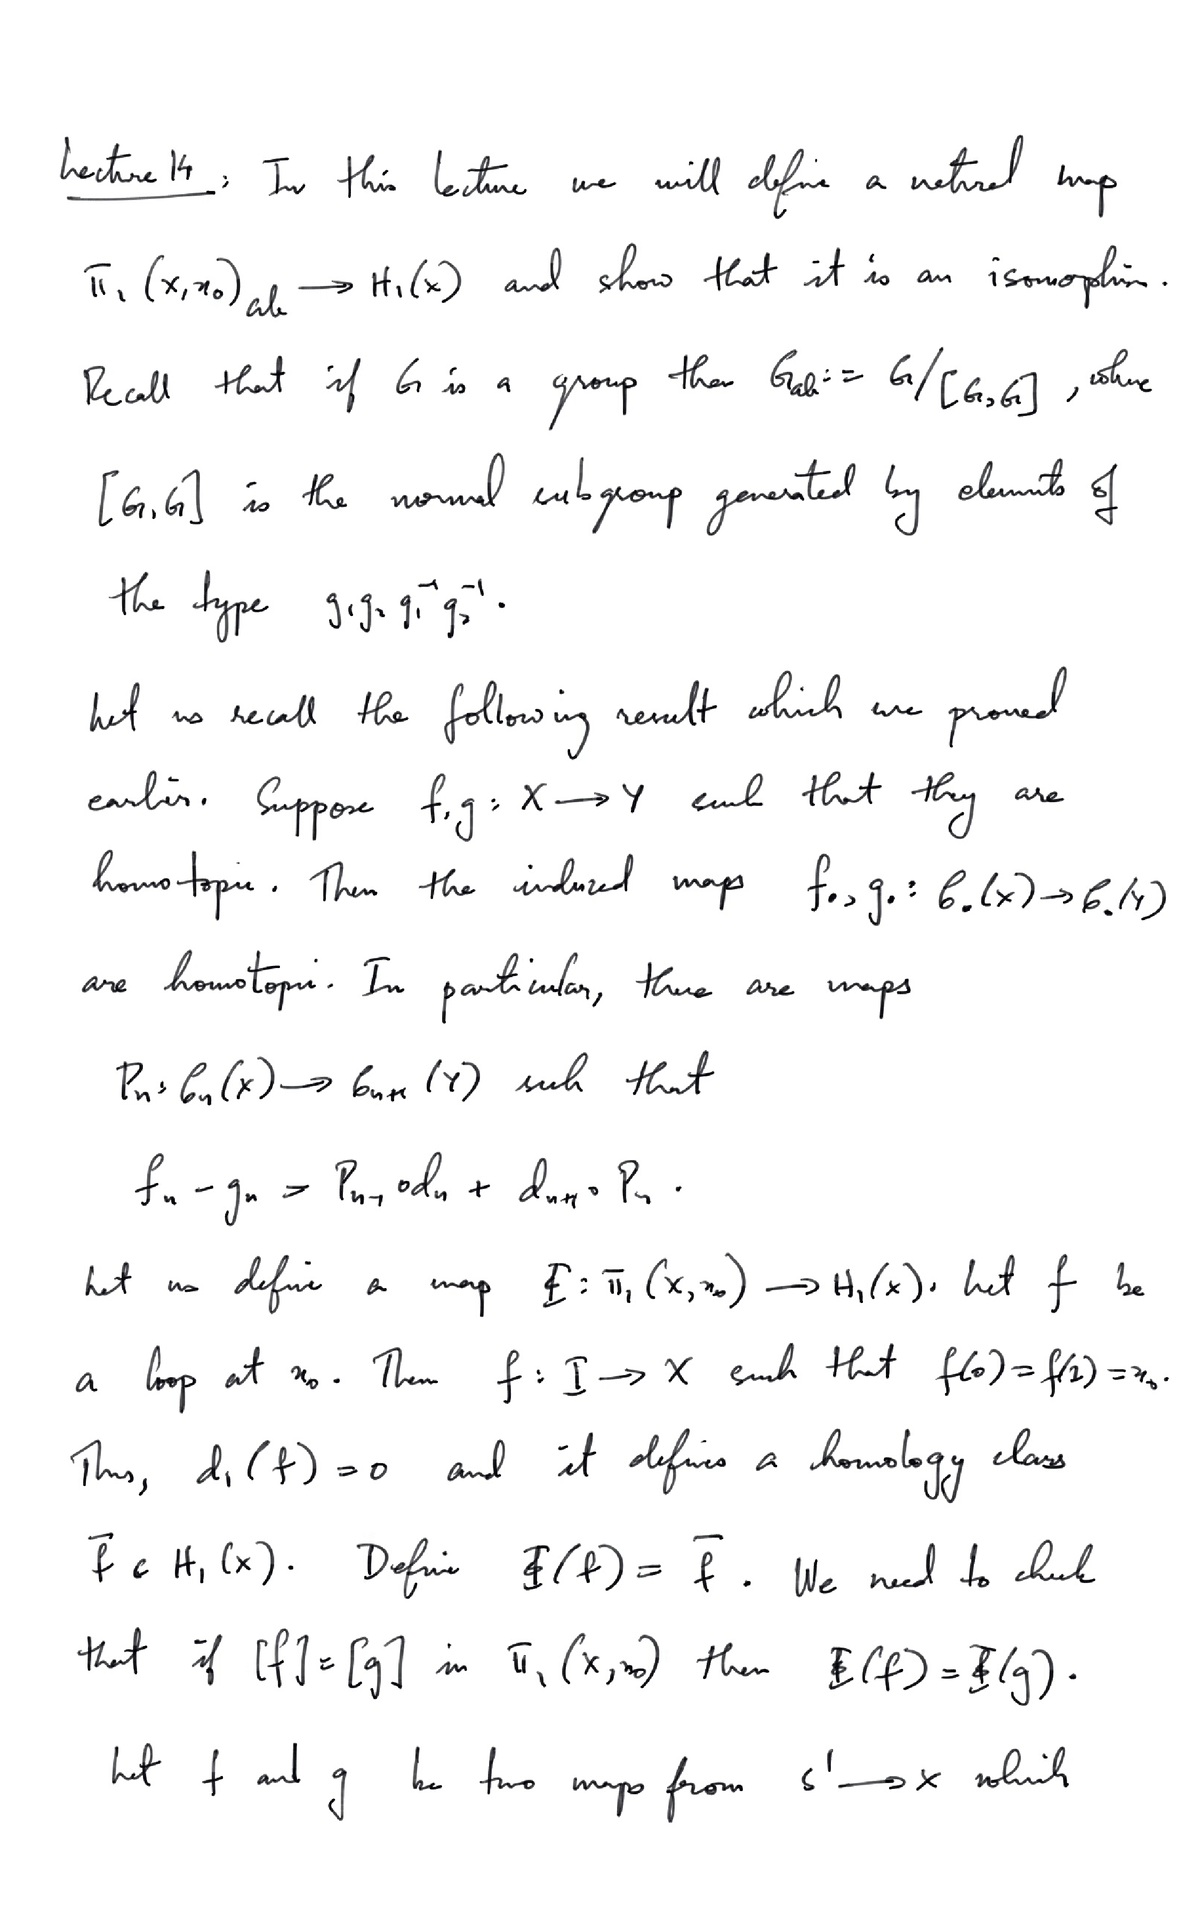 Lecture 14 : In this lecture we will define a natural map
π₁(X, x₀)_ab → H₁(X) and show that it is an isomorphism.
Recall that if G is a group then G_ab := G/[G,G], where
[G,G] is the normal subgroup generated by elements of
the type g₁g₂g₁⁻¹g₂⁻¹.
Let us recall the following result which we proved
earlier. Suppose f, g : X → Y such that they are
homotopic. Then the induced maps f•, g• : C•(X) → C•(Y)
are homotopic. In particular, there are maps
Pₙ : Cₙ(X) → Cₙ₊₁(Y) such that
fₙ - gₙ = Pₙ₋₁ ∘ dₙ + dₙ₊₁ ∘ Pₙ.
Let us define a map Φ : π₁(X, x₀) → H₁(X). Let f be
a loop at x₀. Then f : I → X such that f(0) = f(1) = x₀.
Thus, d₁(f) = 0 and it defines a homology class
f̄ ∈ H₁(X). Define Φ(f) = f̄. We need to check
that if [f] = [g] in π₁(X, x₀) then Φ(f) = Φ(g).
Let f and g be two maps from S¹ → X which